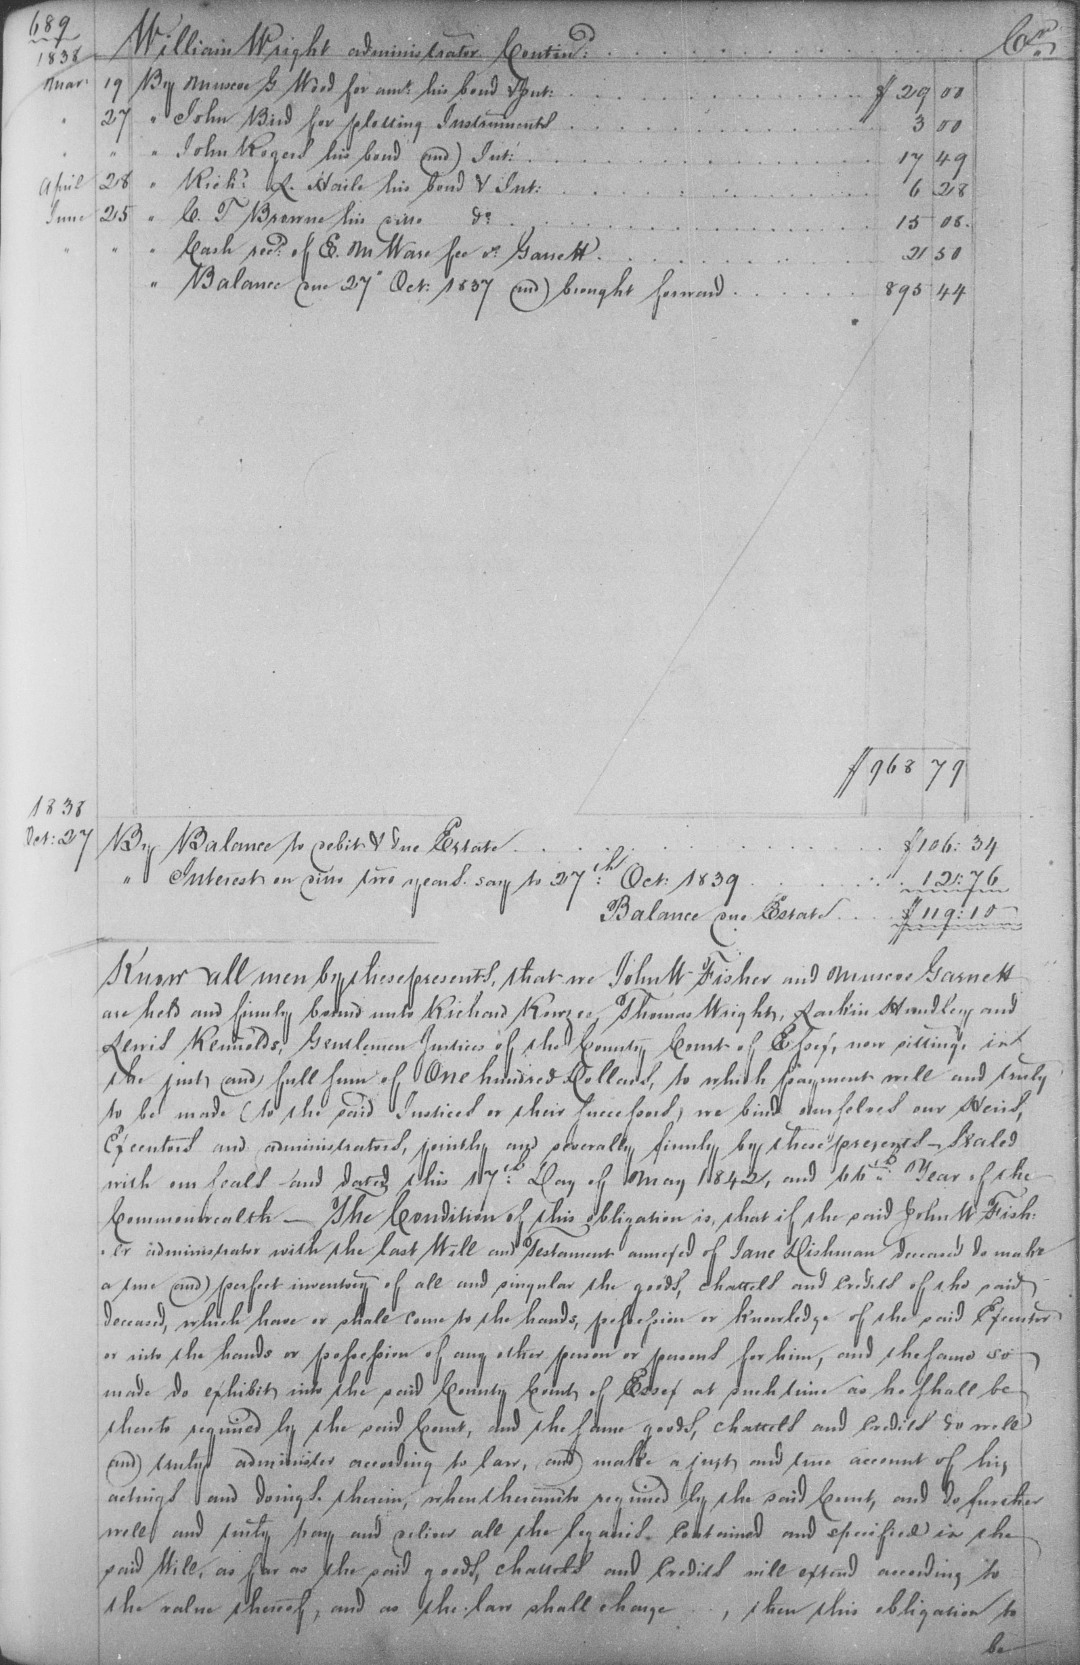 689
William Wright administrator Contind: Cr
1838
Mar: 19 By Muscoe G Wood for amt. his bond & Int: $ 29 00
" 27 " John Bird for plotting Instruments 3 00
" " " John Rogers his bond and Int: 17 49
April 28 " Richd. L. Haile his bond & Int: 6 28
June 25 " C. T Browne his ditto do 15 08.
" " " Cash recd. of E. M Ware fee vs. Garrett 2 50
" Balance due 27" Oct: 1837 and brought forward 895 44
$ 968 79
1838
Oct: 27 By Balance to debit & due Estate $106: 34
" Interest on ditto two years say to 27th: Oct: 1839 12: 76
Balance due Estate $119: 10
Know all men by these presents, that we John W Fisher and Muscoe Garnett
are held and firmly bound unto Richard Rowzee, Thomas Wright, Larkin Hundley and
Lewis Rennolds, Gentlemen Justices of the County Court of Essex, now sitting, in
the just and full sum of One hundred Dollars, to which payment well and truly
to be made (to the said Justices or their successors, we bind ourselves our Heirs,
Executors and administrators, jointly and severally firmly by these presents – Sealed
with our seals and dated this 17th: Day of May 1842, and 66th: Year of the
Commonwealth – The Condition of this obligation is, that if the said John W Fish:
er administrator with the last Will and Testament annexed of Jane Dishman deceased do make
a true and perfect inventory of all and singular the goods, chattels and credits of the said
deceased, which have or shall come to the hands, possession or knowledge of the said Executor
or into the hands or possession of any other person or persons for him, and the same so
made do exhibit into the said County Court of Essex at such time as he shall be
thereto required by the said Court, and the same goods, chattels and credits do well
and truly administer according to law, and make a just and true account of his
actings and doings therein, when thereunto required by the said Court, and do further
well and truly pay and deliver all the legacies contained and specified in the
said Will, as far as the said goods, chattels and credits will extend according to
the value thereof, and as the law shall charge , then this obligation to
be